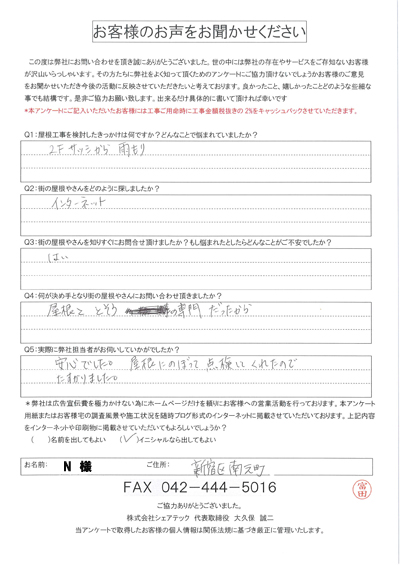 お客様のお声をお聞かせください
この度は弊社にお問い合わせを頂き誠にありがとうございました。世の中には弊社の存在やサービスをご存知ないお客様
が沢山いらっしゃいます。その方たちに弊社をよく知って頂くためのアンケートにご協力頂けないでしょうかお客様のご意見
をお聞かせいただき今後の活動に反映させていきたいと考えております。良かったこと、嬉しかったことどのような些細な
事でも結構です。是非ご協力お願い致します。出来るだけ具体的に書いて頂ければ幸いです
*本アンケートにご記入いただいたお客様には工事ご用命時に工事金額税抜きの 2%をキャッシュバックさせていただきます。
Q1:屋根工事を検討したきっかけは何ですか？どんなことで悩まれていましたか？
2Fサッシから 雨もり
Q2:街の屋根やさんをどのように探しましたか？
インターネット
Q3:街の屋根やさんを知りすぐにお問合せ頂けましたか？もし悩まれたとしたらどんなことがご不安でしたか？
はい
Q4:何が決め手となり街の屋根やさんにお問い合わせ頂きましたか？
屋根と とそう の専門 だったから
Q5:実際に弊社担当者がお伺いしていかがでしたか？
安心でした。 屋根にのぼって 点検してくれたので
たすかりました。
*弊社は広告宣伝費を極力かけない為にホームページだけを頼りにお客様への営業活動を行っております。本アンケート
用紙またはお客様宅の調査風景や施工状況を随時ブログ形式のインターネットに掲載させていただいております。上記内容
をインターネットや印刷物に掲載させていただいてもよろしいでしょうか？
( )名前を出してもよい (✓)イニシャルなら出してもよい
お名前: N 様 ご住所: 新宿区南元町
FAX 042-444-5016
富田
ご協力ありがとうございました。
株式会社シェアテック 代表取締役 大久保 誠二
当アンケートで取得したお客様の個人情報は関係法規に基づき厳正に管理いたします。